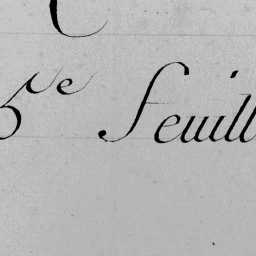 5e feuill